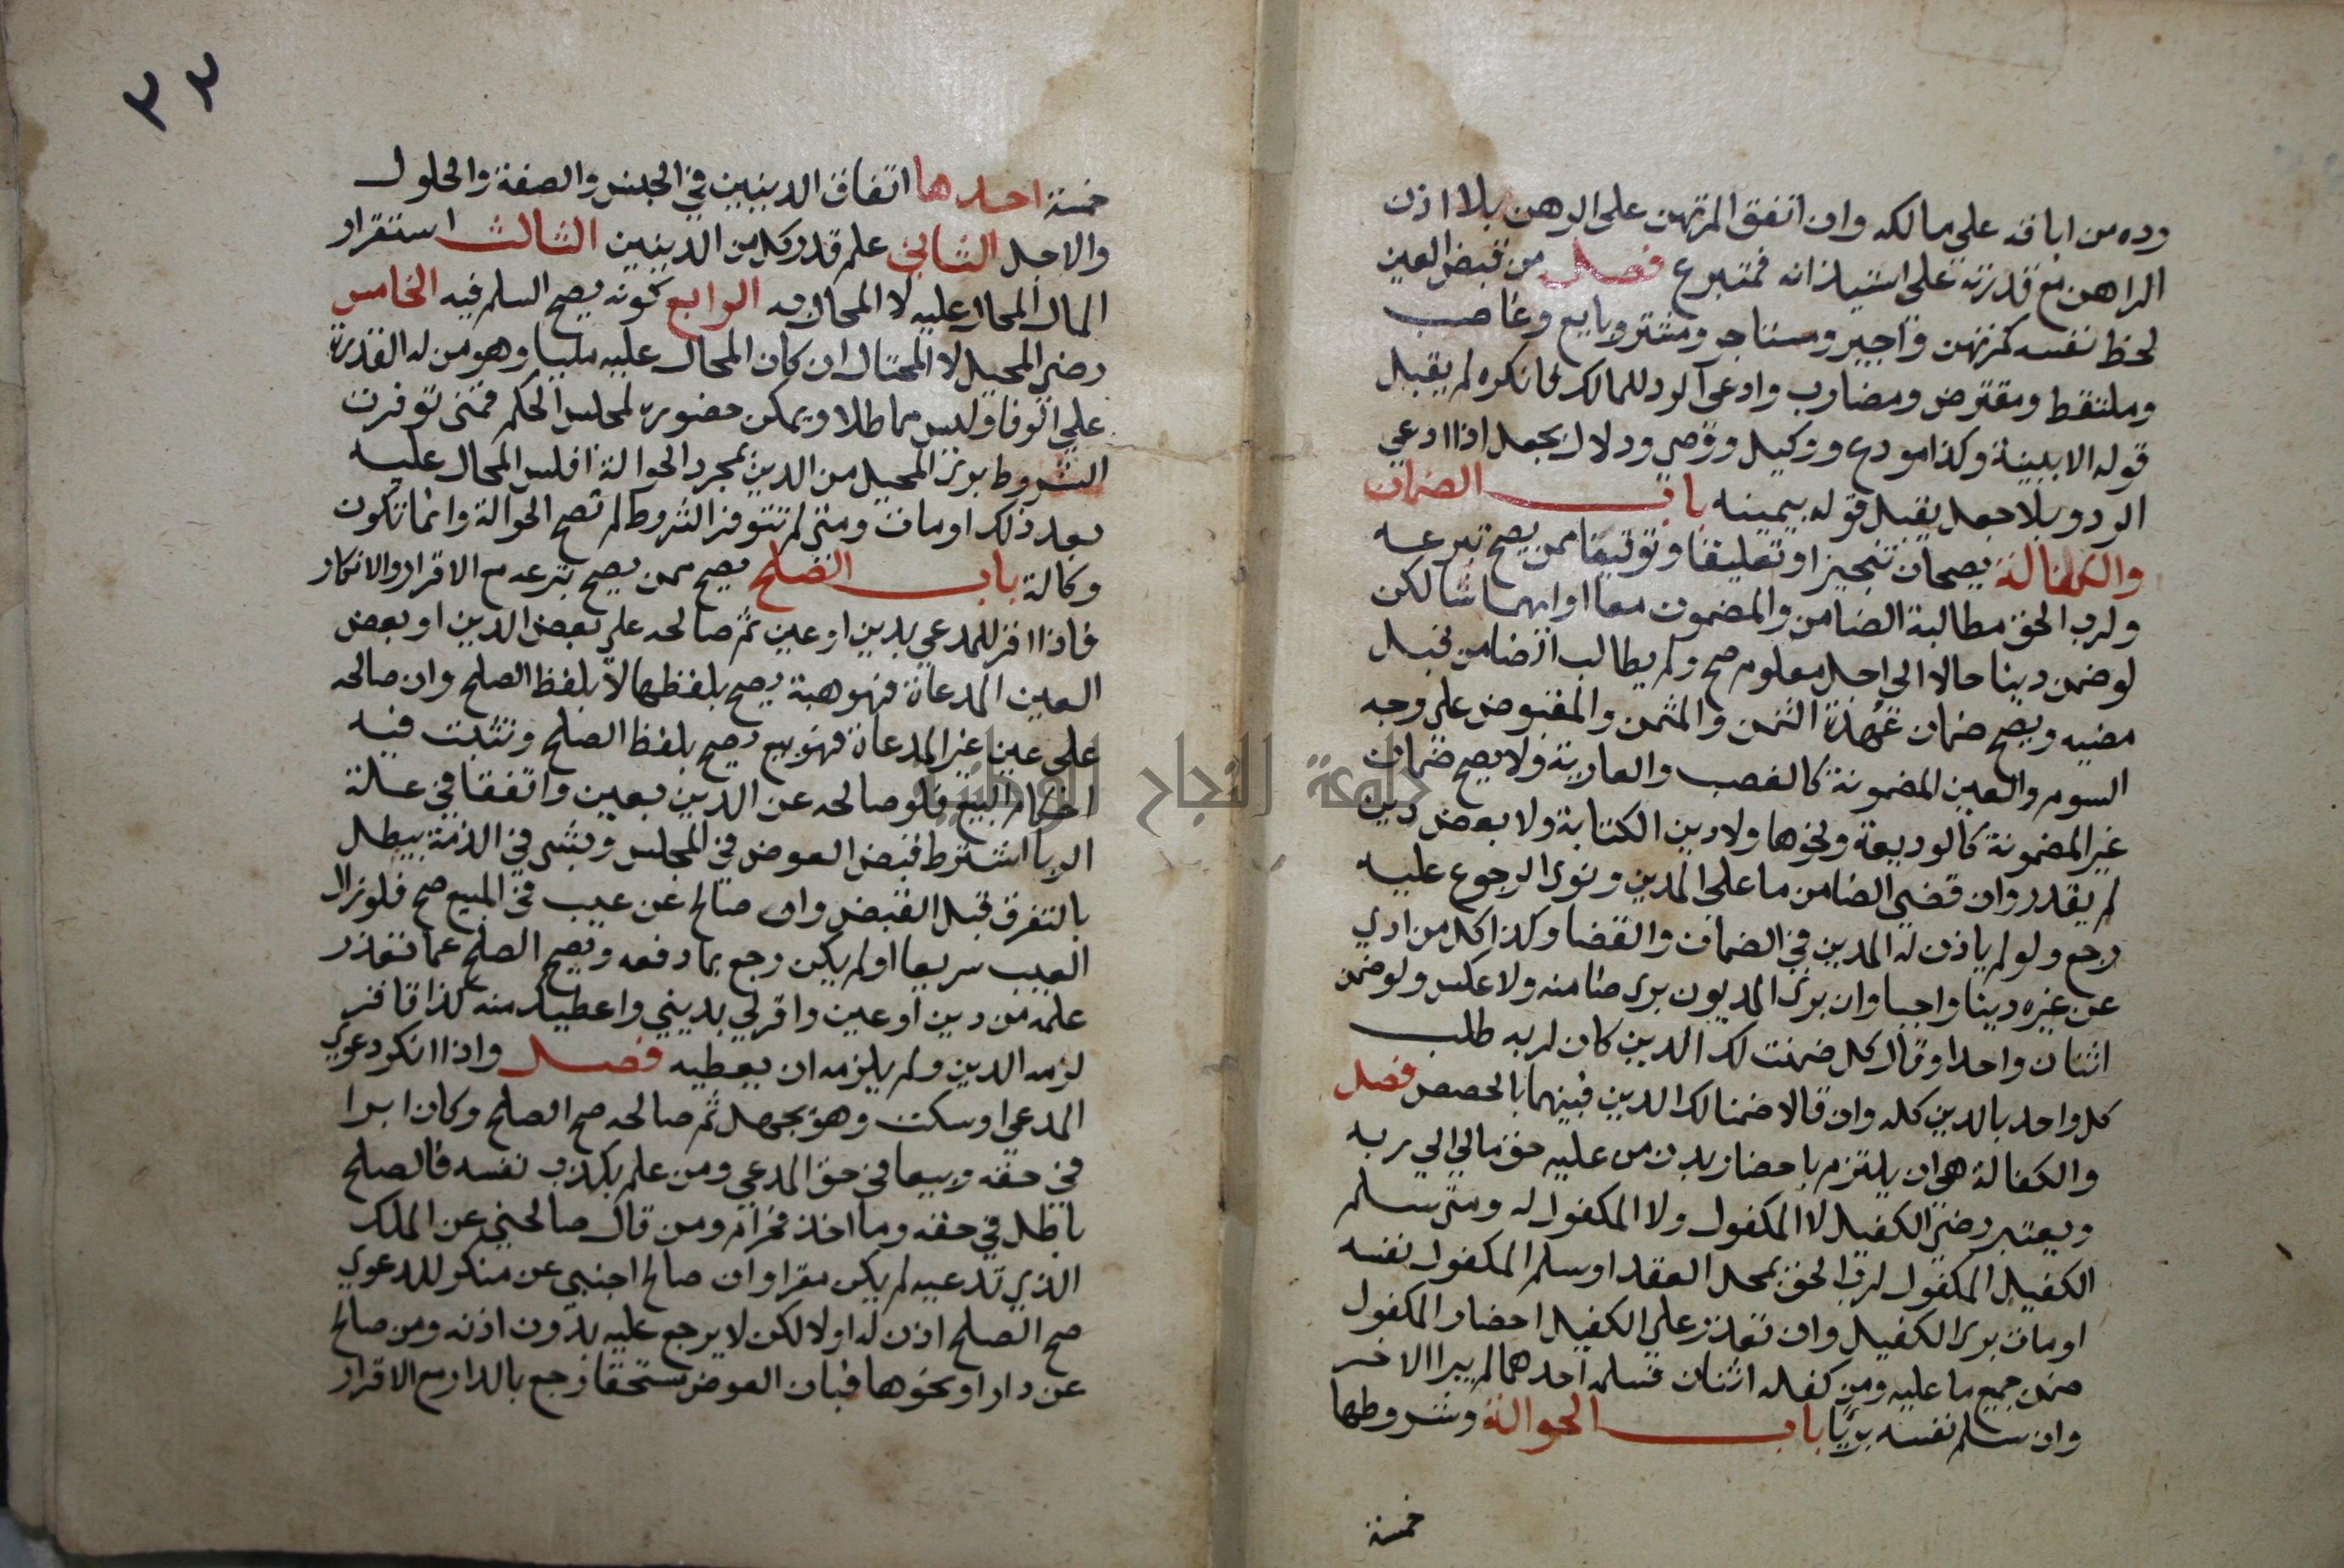 ورده من اباقه علي مالكه وان اتفق المرتهن على الرهن بلا اذن
الراهن مع قدرته على استيذانه فمتبرع فصل من قبض العين
لحظ نفسه كمرتهن واجير ومستاجر ومشتر وبايع وغاصب
وملتقط ومقترض ومضارب وادعى الرد للمالك فانكره لم يقبل
قوله الا ببينة وكذا مودع ووكيل ووصي ودلال بجعل اذا ادعي
الرد وبلا جعل يقبل قوله بيمينه باب الضمان
والكفالة يصحان تنجيزا وتعليقا وتوقيتا ممن يصح تبرعه
ولرب الحق مطالبة الضامن والمضمون معا او ايهما شا لكن
لو ضمن دينا حالا الي اجل معلوم صح ولم يطالب الضامن قبل
مضيه ويصح ضمان عهدة الثمن والمثمن والمقبوض علي وجه
السوم والعين المضمونة كالغصب والعارية ولا يصح ضمان
غير المضمونة كالوديعة ونحوها ولا دين الكتابة ولا بعض دين
لم يقدر وان قضي الضامن ما على المدين ونوى الرجوع عليه
رجع ولو لم ياذن له المدين في الضمان والقضا وكذا كل من ادي
عن غيره دينا واجبا وان برئ المديون برئ ضامنه ولا عكس ولو ضمن
اثنان واحدا وقال كل ضمنت لك الدين كان لربه طلب
كل واحد بالدين كله وان قالا ضمنا لك الدين فبينهما بالحصص فصل
والكفالة هي ان يلتزم باحضار بدن من عليه حق مالي الي ربه
ويعتبر رضى الكفيل لا المكفول ولا المكفول له ومتى سلم
الكفيل المكفول لرب الحق بمحل العقد او سلم المكفول نفسه
او مات برئ الكفيل وان تعذر علي الكفيل احضار المكفول
ضمن جميع ما عليه ومن كفله اثنان فسلمه احدهما لم يبرا الاخر
وان سلم نفسه بريا باب الحوالة وشروطها
خمسة
٣٣
خمسة احدها اتفاق الدينين في الجنس والصفة والحلول
والاجل الثاني علم قدر كل من الدينين الثالث استقرار
المال المحال عليه لا المحال به الرابع كونه يصح السلم فيه الخامس
رضى المحيل لا المحتال ان كان المحال عليه مليا وهو من له القدرة
علي الوفا وليس مماطلا ويمكن حضوره لمجلس الحكم فمتى توفرت
الشروط برئ المحيل من الدين بمجرد الحوالة افلس المحال عليه
بعد ذلك او مات ومتى لم تتوفر الشروط لم تصح الحوالة وانما تكون
وكالة باب الصلح يصح ممن يصح تبرعه مع الاقرار والانكار
فاذا اقر للمدعي بدين او عين ثم صالحه علي بعض الدين او بعض
العين المدعاة فهو هبة يصح بلفظها لا بلفظ الصلح وان صالحه
على عين غير المدعاة فهو بيع يصح بلفظ الصلح وتثبت فيه
احكام البيع فلو صالحه عن الدين بعين واتفقا في علة
الربا اشترط قبض العوض في المجلس وبشي في الذمة يبطل
بالتفرق قبل القبض وان صالح عن عيب في المبيع صح فلو زال
العيب سريعا او لم يكن رجع بما دفعه ويصح الصلح عما تعذر
علمه من دين او عين واقر لي بديني واعطيك منه كذا فاقر
لزمه الدين ولم يلزمه ان يعطيه فصل واذا انكر دعوي
المدعي او سكت وهو يجهل ثم صالحه صح الصلح وكان ابرا
في حقه وبيعا في حق المدعي ومن علم بكذب نفسه فالصلح
باطل في حقه وما اخذ فحرام ومن قال صالحني عن الملك
الذي تدعيه لم يكن مقرا وان صالح اجنبي عن منكر للدعوي
صح الصلح اذن له او لا لكن لا يرجع عليه بدون اذنه ومن صالح
عن دار او نحوها فبان العوض مستحقا رجع بالدار مع الاقرار
جامعة النجاح الوطنية